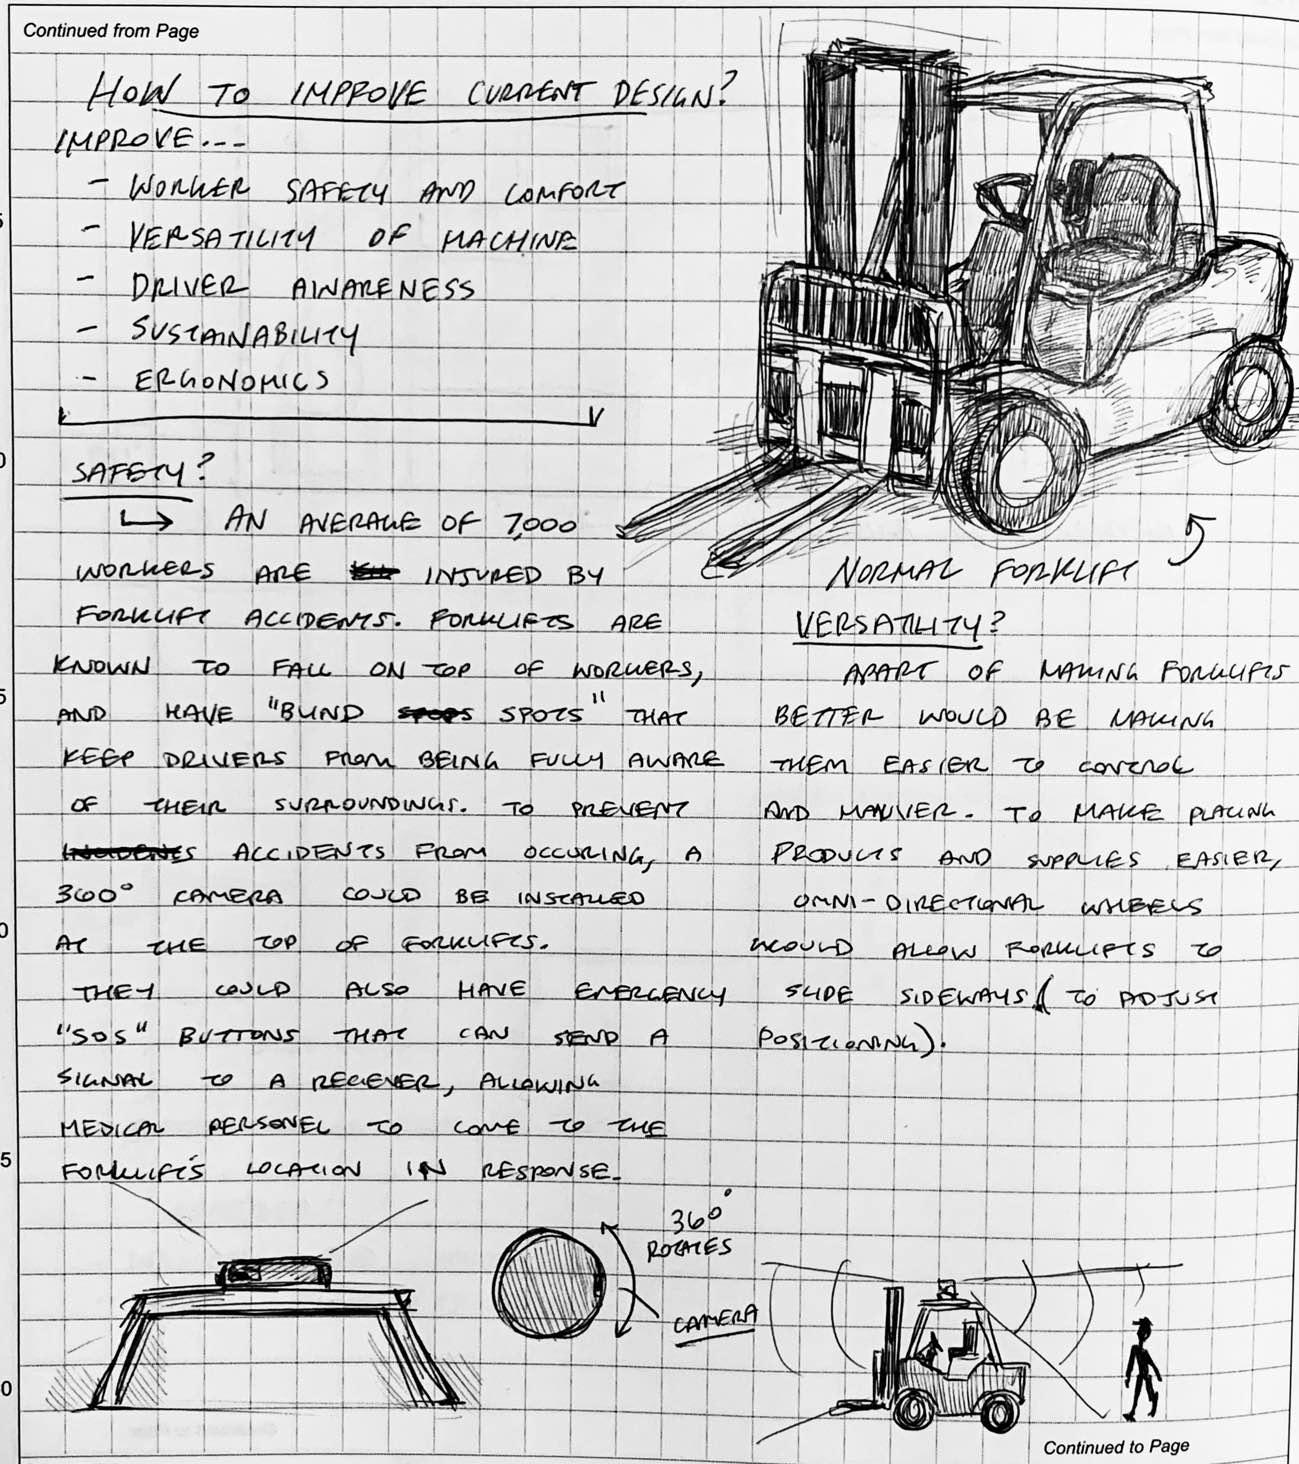 Continued from Page
HOW TO IMPROVE CURRENT DESIGN?
IMPROVE...
- WORKER SAFETY AND COMFORT
- VERSATILITY OF MACHINE
- DRIVER AWARENESS
- SUSTAINABILITY
- ERGONOMICS
SAFETY?
↳ AN AVERAGE OF 7,000
WORKERS ARE INJURED BY
FORKLIFT ACCIDENTS. FORKLIFTS ARE
KNOWN TO FALL ON TOP OF WORKERS,
AND HAVE "BLIND SPOTS" THAT
KEEP DRIVERS FROM BEING FULLY AWARE
OF THEIR SURROUNDINGS. TO PREVENT
INCIDENTS ACCIDENTS FROM OCCURING, A
360° CAMERA COULD BE INSTALLED
AT THE TOP OF FORKLIFTS.
THEY COULD ALSO HAVE EMERGENCY
"SOS" BUTTONS THAT CAN SEND A
SIGNAL TO A RECIEVER, ALLOWING
MEDICAL PERSONEL TO COME TO THE
FORKLIFT'S LOCATION IN RESPONSE.
NORMAL FORKLIFT
VERSATILITY?
APART OF MAKING FORKLIFTS
BETTER WOULD BE MAKING
THEM EASIER TO CONTROL
AND MANUVER. TO MAKE PLACING
PRODUCTS AND SUPPLIES EASIER,
OMNI-DIRECTIONAL WHEELS
WOULD ALLOW FORKLIFTS TO
SLIDE SIDEWAYS (TO ADJUST
POSITIONING).
360°
ROTATES
CAMERA
Continued to Page